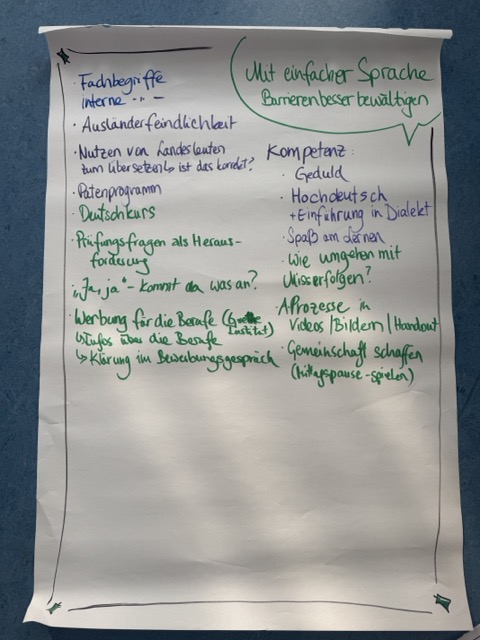 Mit einfacher Sprache
Barrieren besser bewältigen
Fachbegriffe
interne -"-
· Ausländerfeindlichkeit
· Nutzen von Landesleuten
zum Übersetzen ↳ ist das korrekt?
· Patenprogramm
· Deutschkurs
· Prüfungsfragen als Heraus-
forderung
· "Ja, ja" - kommt da was an?
· Werbung für die Berufe (Goethe
Institut)
↳ Infos über die Berufe
↳ Klärung im Bewerbungsgespräch
Kompetenz:
· Geduld
· Hochdeutsch
+ Einführung in Dialekt
· Spaß am Lernen
· Wie umgehen mit
Misserfolgen?
· Prozesse in
Videos / Bildern / Handout
· Gemeinschaft schaffen
(Mittagspause - spielen)